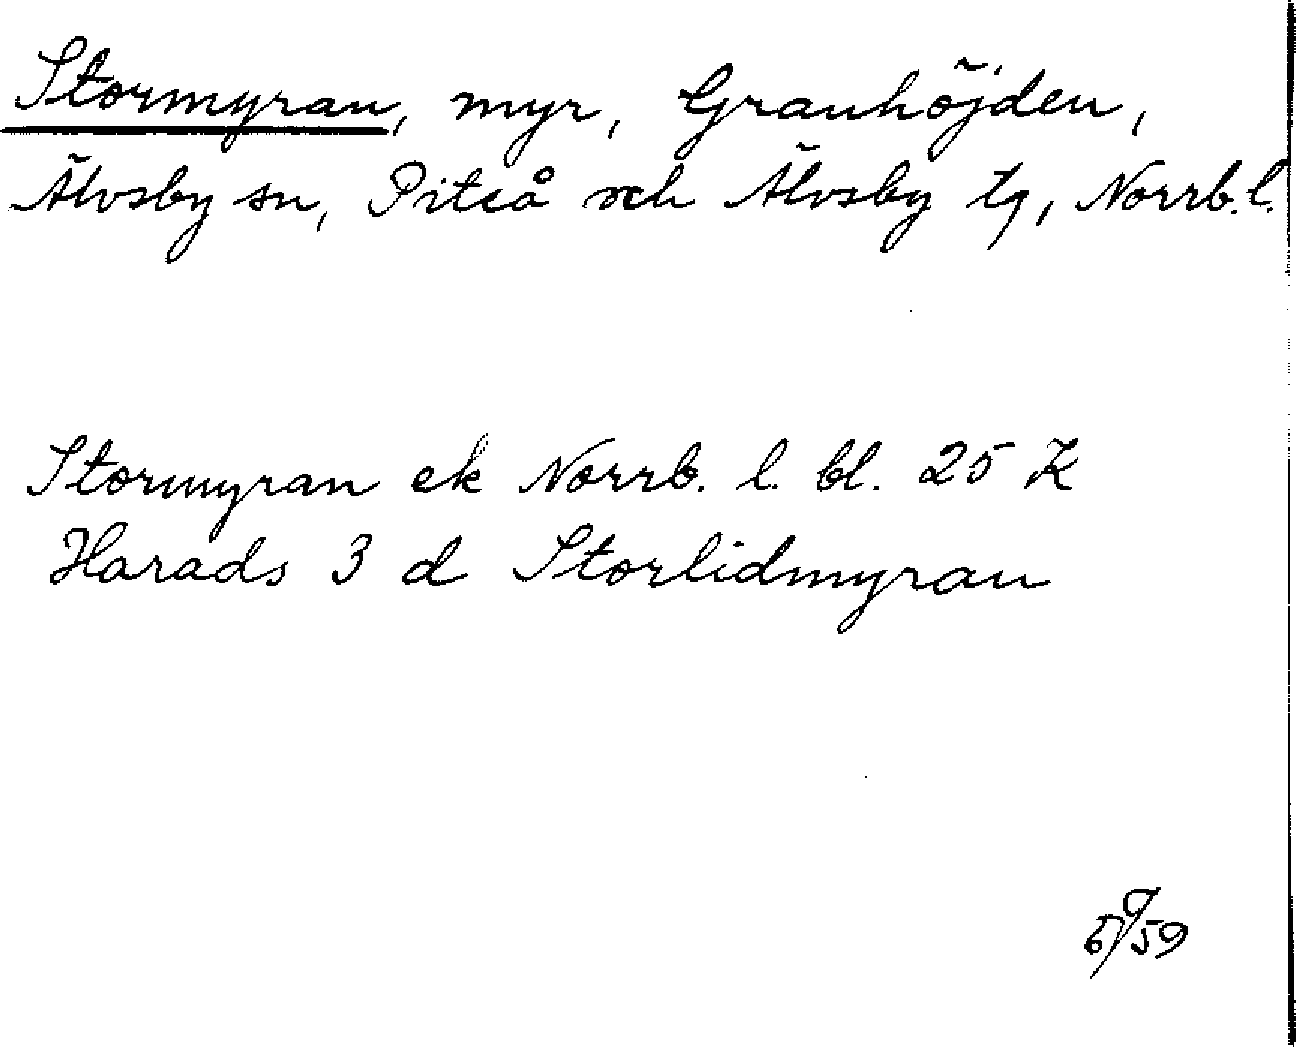 Stormyran, myr, Granhöjden,
Älvsby sn, Piteå och Älvsby tg, Norrb. l.
Stormyran ek Norrb. l. bl. 25 Z
Harads 3 d Storlidmyran